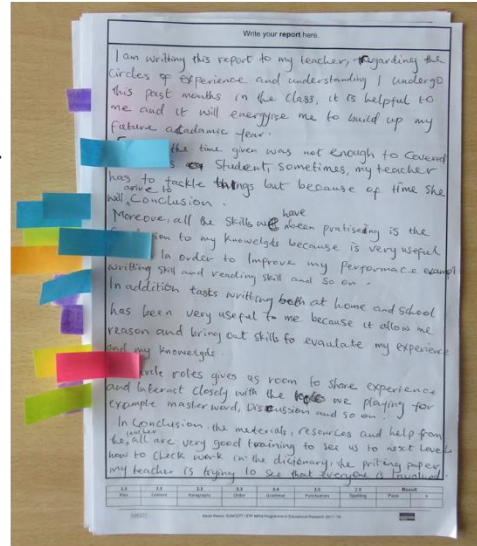 Write your report here.
I am writting this report to my teacher, regarding the
circles of experience and understanding I undergo
this past months in the class, it is helpful to
me and it will energyise me to build up my
future acadamic year.
the time given was not enough to covered
student, sometimes, my teacher
has to tackle things but because of time she
arrive to
will conclusion.
have
Moreove, all the skills we been pratiseing is the
to my knowelgds because is very useful
In order to Improve my performace exampl
writting skill and reading skill and so on.
In addition tasks writting both at home and school
has been very useful to me because it allow me
reason and bring out skills to evaulate my experience
and my knowelgds.
circle roles gives us room to share experience
and Interact closely with the role we playing for
example masterword, Discussion and so on.
In conclusion, the meterials, resources and help from
teacher
all are very good training to see us to next level
how to check work in the dictionary, the priting paper,
my teacher is trying to see that everyone is Involved.
Plan Content Paragraphs Order Grammar Punctuation Spelling Result Pass